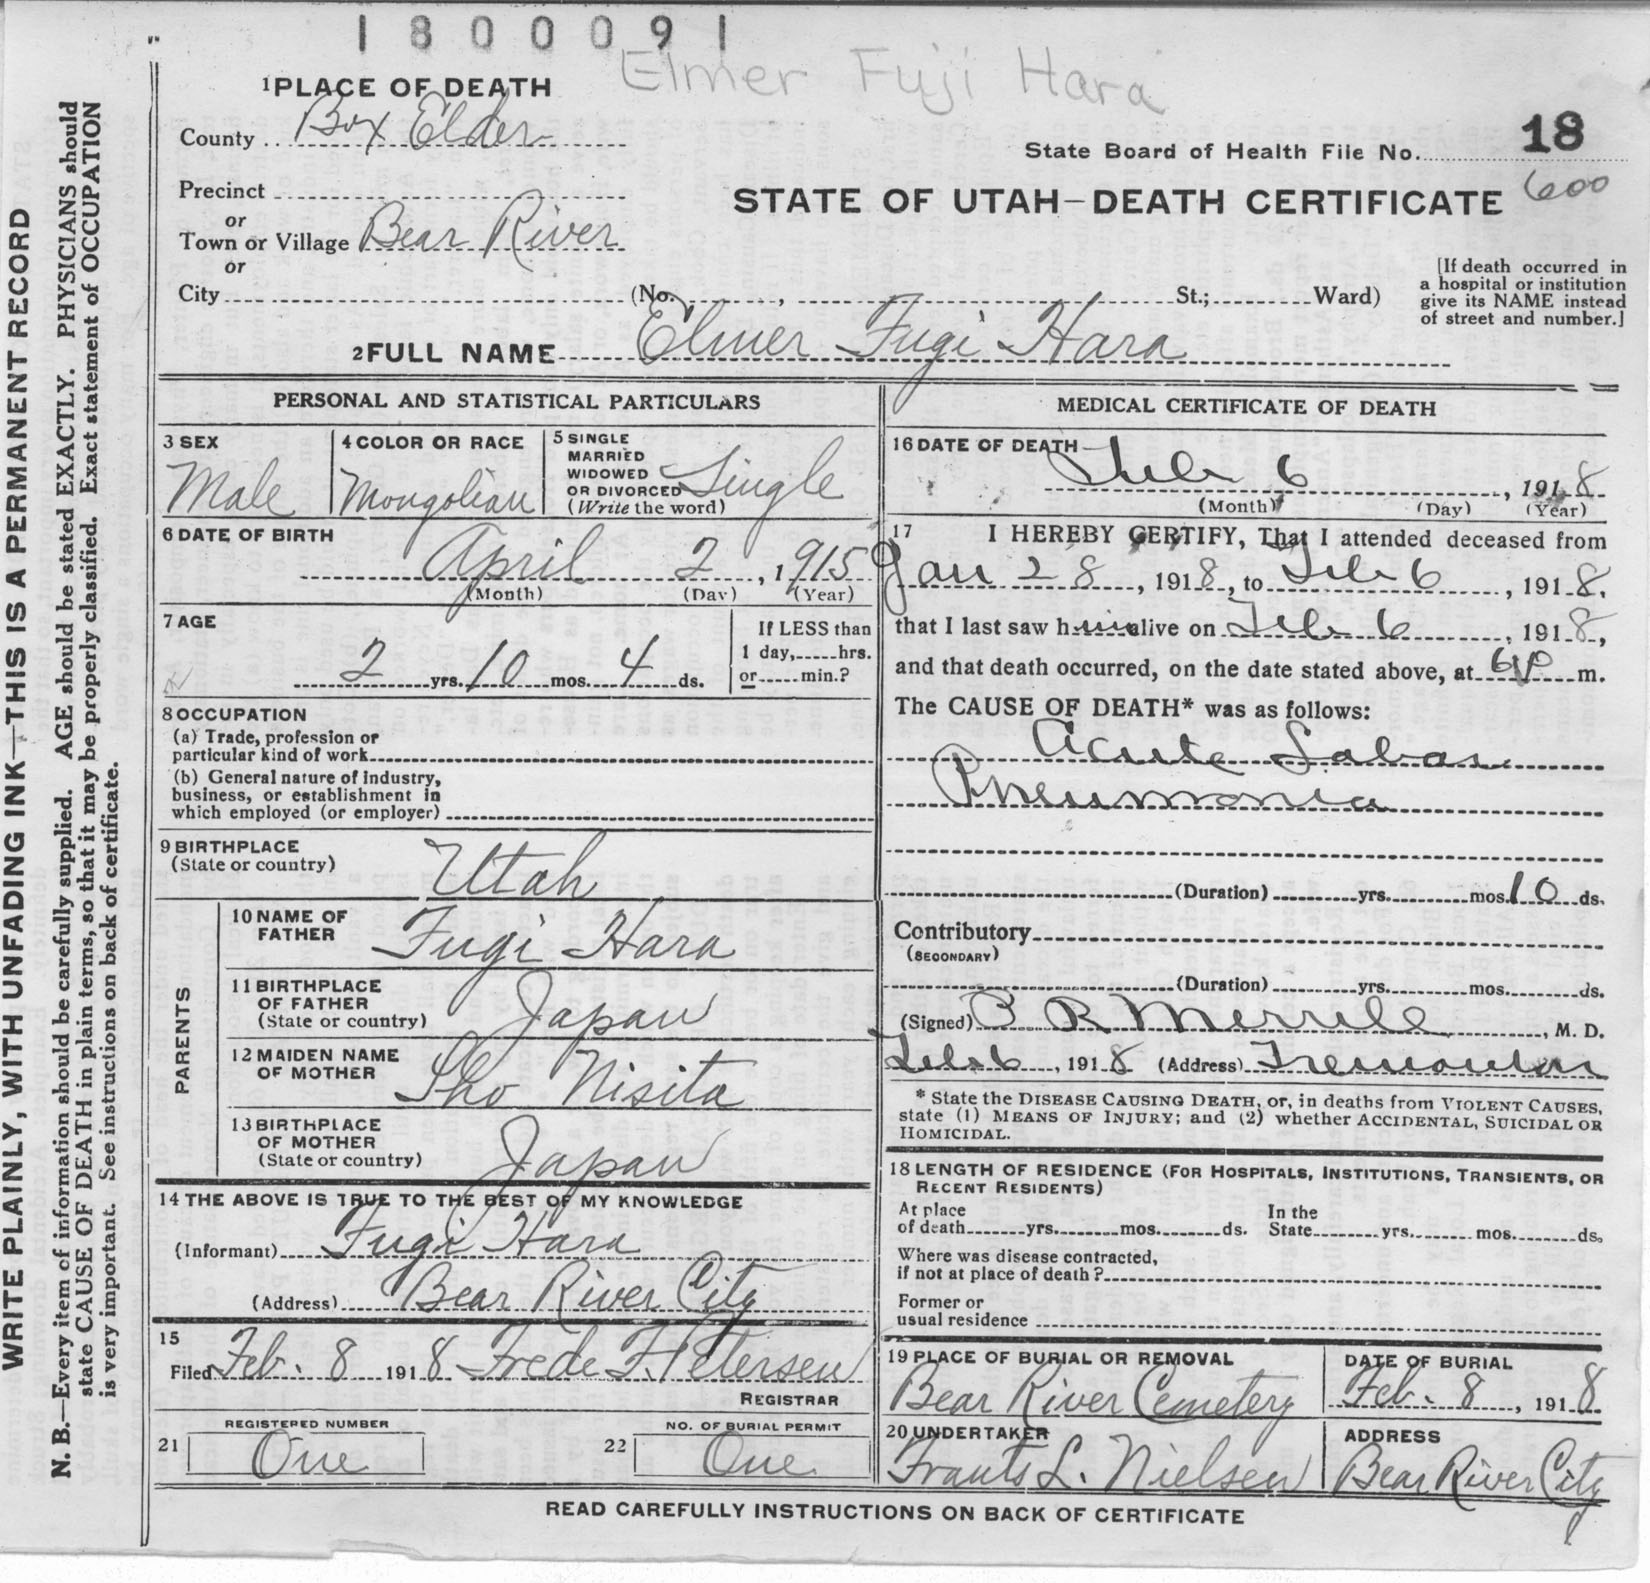 1800091
Elmer Fuji Hara
1 PLACE OF DEATH
County Box Elder
State Board of Health File No. 18
600
Precinct
or
Town or Village Bear River
or
City (No. , St.; Ward)
STATE OF UTAH—DEATH CERTIFICATE
[If death occurred in
a hospital or institution
give its NAME instead
of street and number.]
2 FULL NAME Elmer Fugi Hara
PERSONAL AND STATISTICAL PARTICULARS
3 SEX
Male
4 COLOR OR RACE
Mongolian
5 SINGLE
MARRIED
WIDOWED
OR DIVORCED
(Write the word)
Single
6 DATE OF BIRTH
April 2, 1915
(Month) (Day) (Year)
7 AGE
2 yrs. 10 mos. 4 ds.
If LESS than
1 day, hrs.
or min.?
8 OCCUPATION
(a) Trade, profession or
particular kind of work
(b) General nature of industry,
business, or establishment in
which employed (or employer)
9 BIRTHPLACE
(State or country)
Utah
PARENTS
10 NAME OF
FATHER
Fugi Hara
11 BIRTHPLACE
OF FATHER
(State or country)
Japan
12 MAIDEN NAME
OF MOTHER
Sho Nisita
13 BIRTHPLACE
OF MOTHER
(State or country)
Japan
14 THE ABOVE IS TRUE TO THE BEST OF MY KNOWLEDGE
(Informant) Fugi Hara
(Address) Bear River City
15
Filed Feb. 8 1918 Frede F. Petersen
REGISTRAR
REGISTERED NUMBER
21 One
NO. OF BURIAL PERMIT
22 One
MEDICAL CERTIFICATE OF DEATH
16 DATE OF DEATH
Feb 6, 1918
(Month) (Day) (Year)
17 I HEREBY CERTIFY, That I attended deceased from
Jan 28, 1918, to Feb 6, 1918,
that I last saw him alive on Feb 6, 1918,
and that death occurred, on the date stated above, at m.
The CAUSE OF DEATH* was as follows:
Acute Lobar
Pneumonia
(Duration) yrs. mos. 10 ds.
Contributory
(SECONDARY)
(Duration) yrs. mos. ds.
(Signed) P R Merrill, M. D.
Feb 6, 1918 (Address) Tremonton
* State the DISEASE CAUSING DEATH, or, in deaths from VIOLENT CAUSES,
state (1) MEANS OF INJURY; and (2) whether ACCIDENTAL, SUICIDAL OR
HOMICIDAL.
18 LENGTH OF RESIDENCE (FOR HOSPITALS, INSTITUTIONS, TRANSIENTS, OR
RECENT RESIDENTS)
At place
of death yrs. mos. ds.
In the
State yrs. mos. ds.
Where was disease contracted,
if not at place of death?
Former or
usual residence
19 PLACE OF BURIAL OR REMOVAL
Bear River Cemetery
DATE OF BURIAL
Feb. 8, 1918
20 UNDERTAKER
Frants L. Nielsen
ADDRESS
Bear River City
READ CAREFULLY INSTRUCTIONS ON BACK OF CERTIFICATE
WRITE PLAINLY, WITH UNFADING INK—THIS IS A PERMANENT RECORD
N. B.—Every item of information should be carefully supplied. AGE should be stated EXACTLY. PHYSICIANS should
state CAUSE OF DEATH in plain terms, so that it may be properly classified. Exact statement of OCCUPATION
is very important. See instructions on back of certificate.